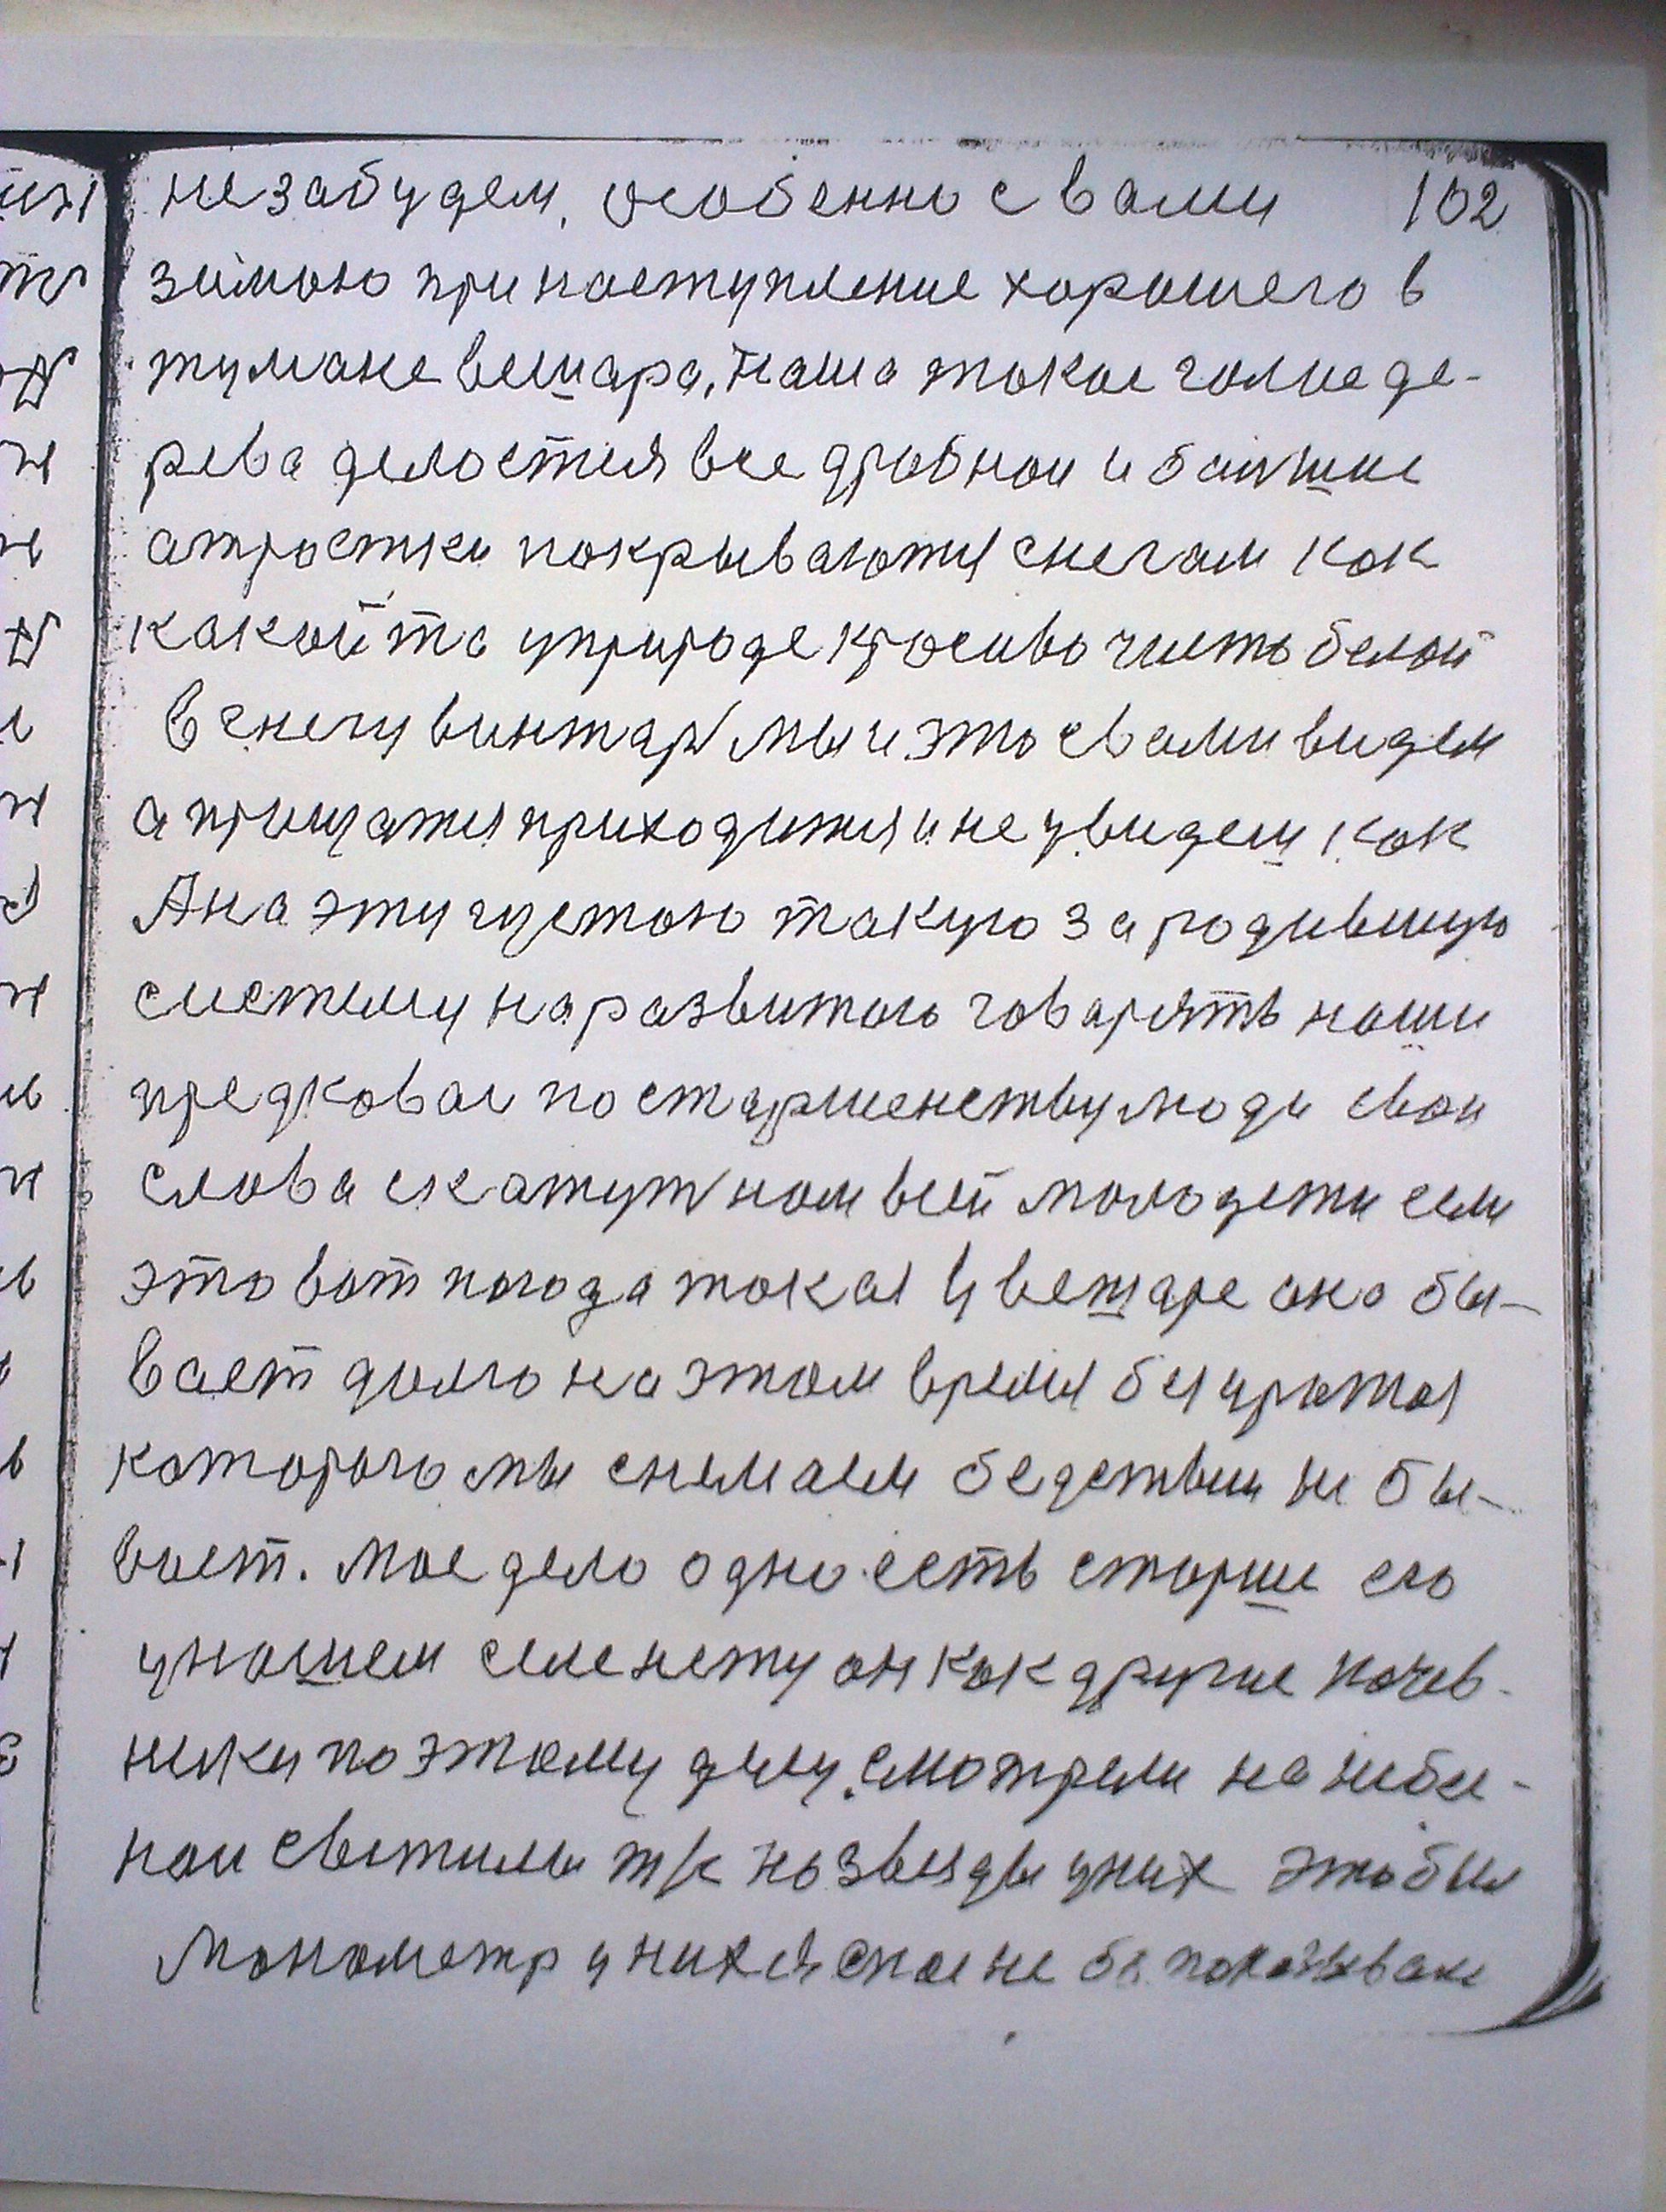 не забудем, особенно с вами 102
зимою при наступление хорошего в
тумане вешара, наша такое голие де-
рева делоется все дробнои и балшие
атростки покрываются снегам как
какойта уприроде красиво чисто белой
в снегу винтар мы и это свами видем
а прищатся приходится и не увидеш как
Ана эту густою такую зародившую
систему на развитого говарять наши
предковаи по старшенству люди свои
слова скажут нам всей молодежи если
это вот погода такая у вешаре ана бы-
вает долго на этом время
которого мы снемаем бедствии не бы-
вает. Мое дело одно есть старше его
унашем селе нету он как другие кочев-
ники по этому делу. смотрели на небес-
нои светилы т/к на звезды уних это был
манометр у них ясное не бы показывал